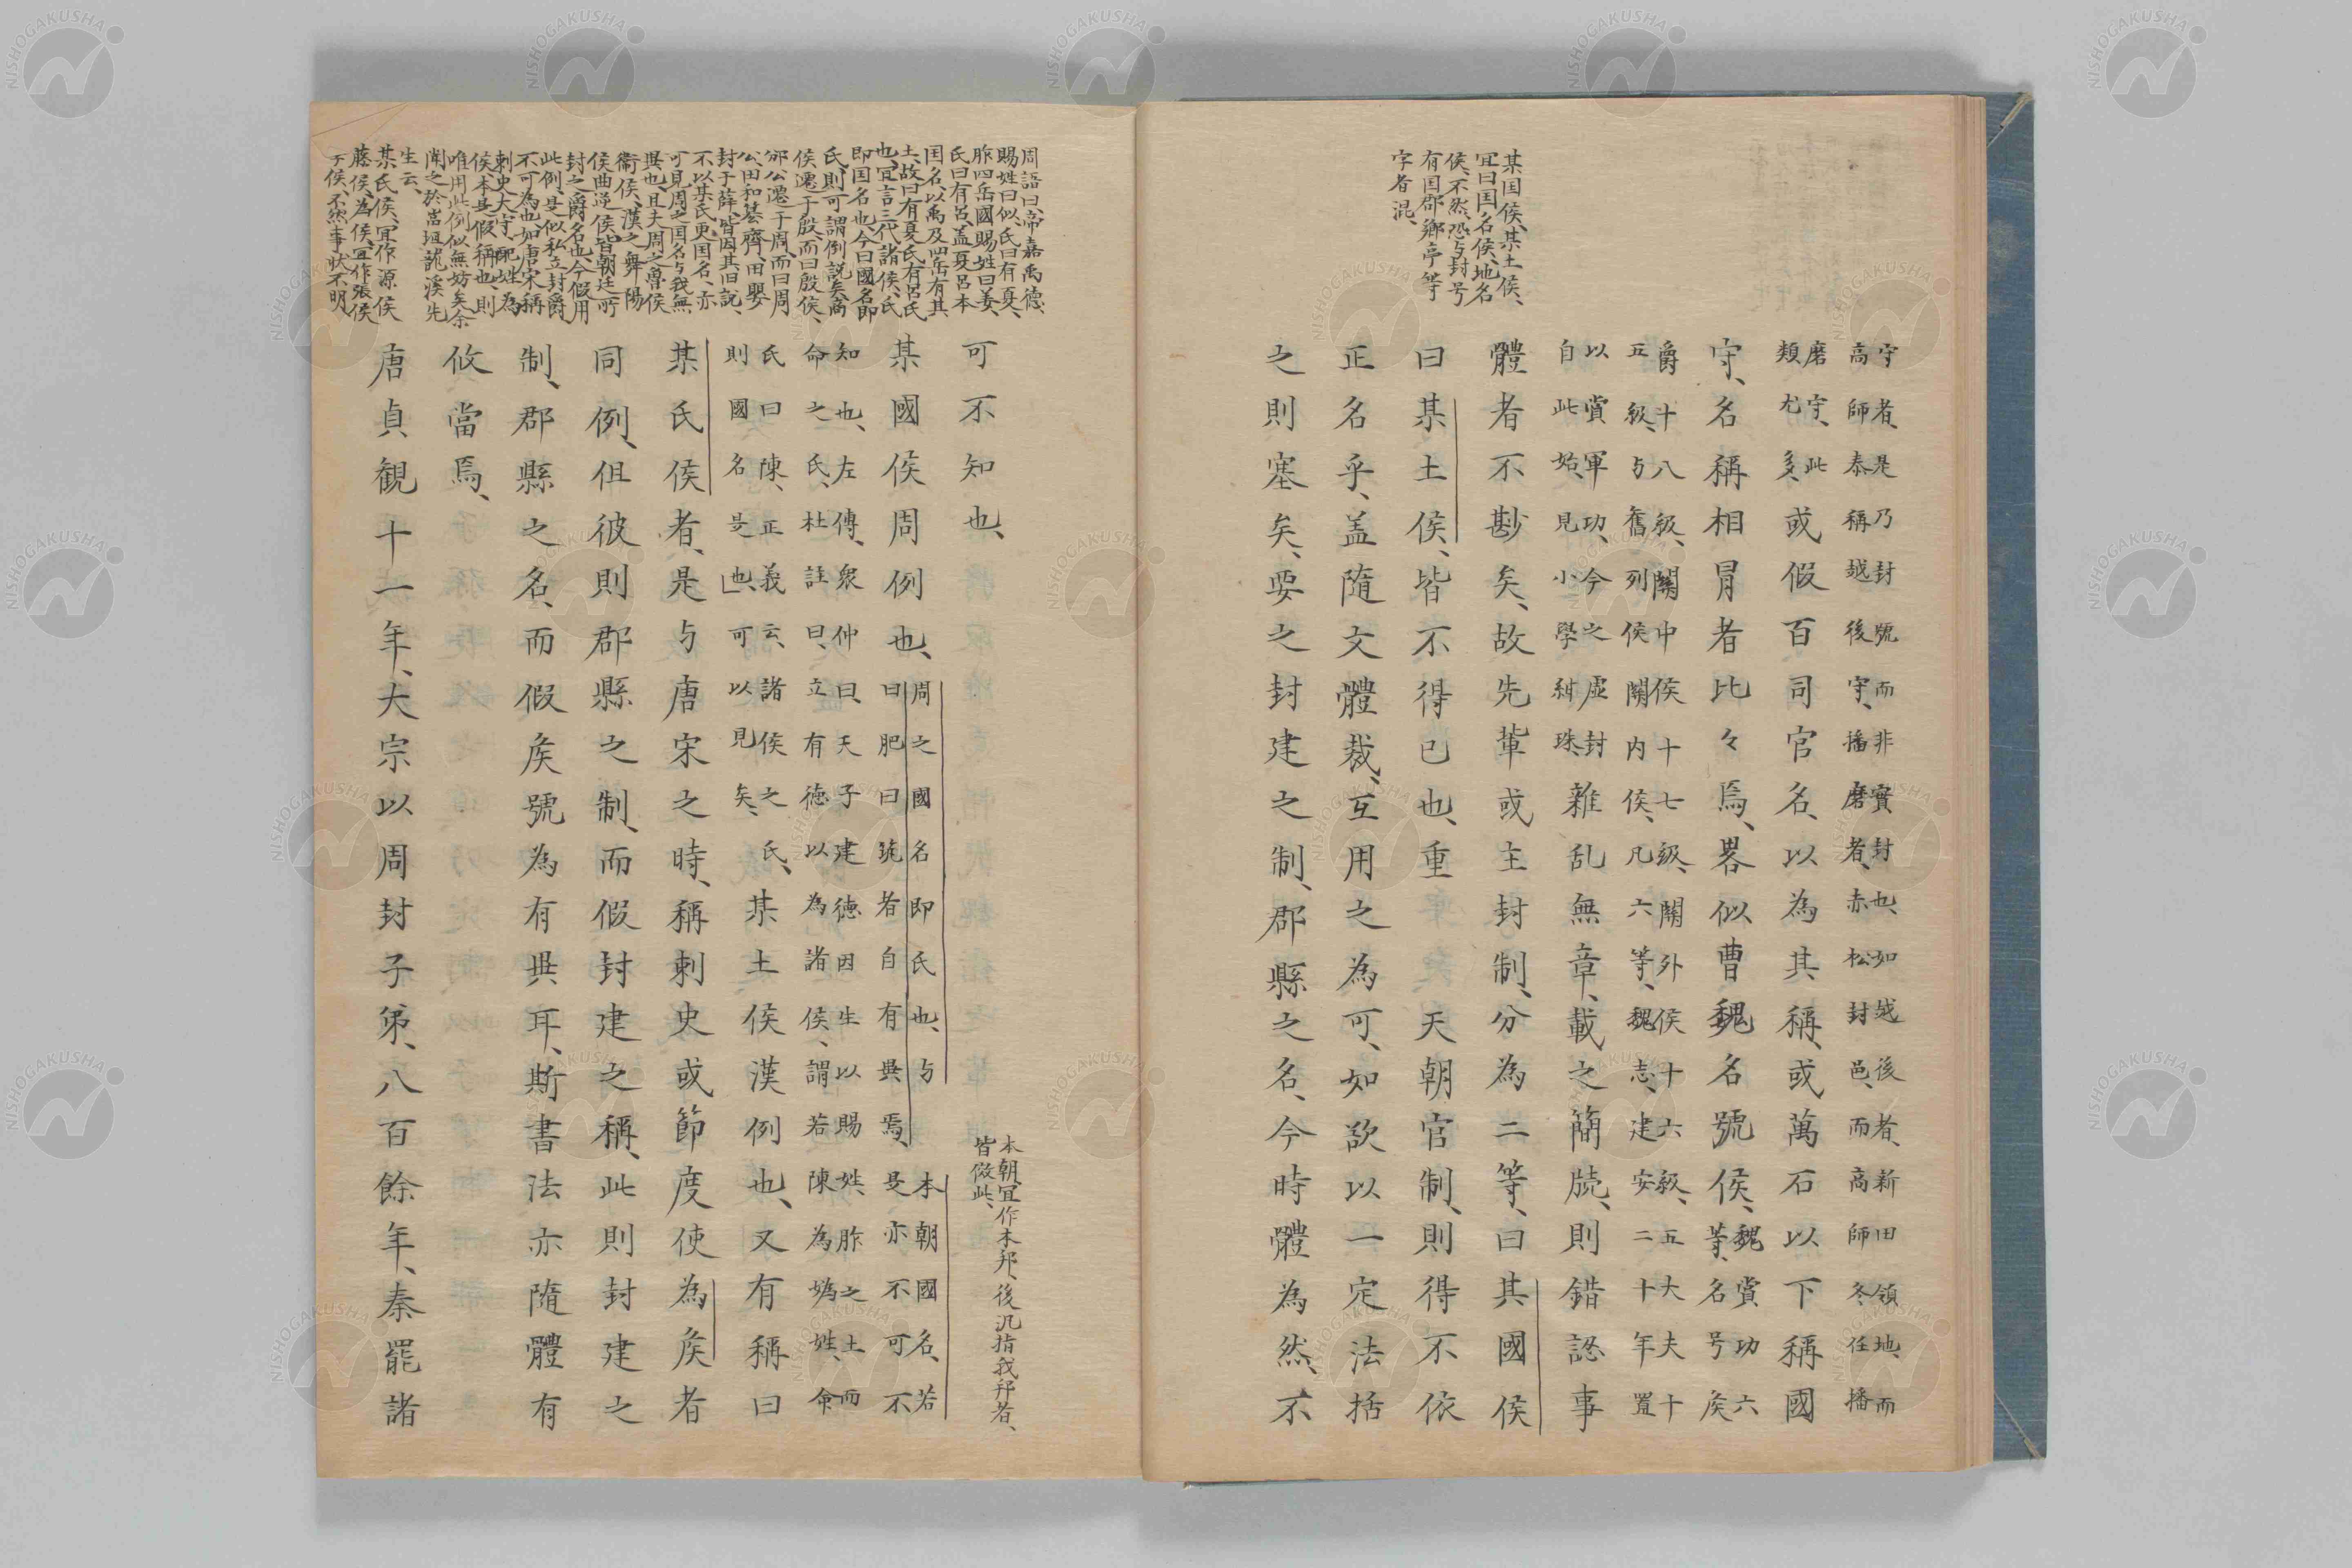 某国侯、某土侯、
冝曰国名侯、地名
侯、不然、恐与封号
有国郡郷亭等
字者混、
守者、是乃封號而非實封也、如越後者、新田領地、而
高師泰稱越後守、播磨者、赤松封邑、而高師冬任播
磨守、此
類尤多、
或假百司官名、以為其稱、或萬石以下稱國
守、名稱相冐者比々焉、畧似曹魏名號侯、
魏賞功六
等、名号侯
爵十八級、關中侯十七級、關外侯十六級、五大夫十
五級、与舊列侯關内侯、凡六等、魏志、建安二十年置
以賞軍功、今之虛封
自此始、見小學紺珠、
雜乱無章、載之簡牘、則錯認事
體者不尠矣、故先輩或主封制、分為二等、曰其國侯
曰某土侯、皆不得已也、重天朝官制、則得不依
正名乎、盖隨文體裁、互用之為可、如欲以一定法括
之則塞矣、要之封建之制、郡縣之名、今時體為然、不
周語曰、帝嘉禹德、
賜姓曰似、氏曰有夏、
胙四岳國、賜姓曰姜、
氏曰有呂、盖夏呂本
国名、以禹及四岳有其
土、故曰有夏氏有呂氏
也、冝言三代諸侯、氏
即国名也、今曰國名即
氏、則可謂例説矣、商
侯遷于殷、而曰殷侯、
邠公遷于周、而曰周
公、田和簒齊、田嬰
封于薛、皆因其旧説、
不以某氏更国名、亦
可見周之国名与我無
異也、且夫周之魯侯
衞侯、漢之舞陽
侯曲逆侯、皆朝廷所
封之爵名也、今假用
此例、是似私立封爵
不可為也、如唐宋稱
刺史大守、配姓為
侯、本是假稱也、則
唯用此例、似無妨矣、余
聞之於嵩垣龍溪先
生云、
某氏侯、冝作源侯
藤侯、為侯、冝作張侯
于侯、不然事状不明
可不知也、
本朝冝作本邦、後汎指我邦者、
皆傚此、
某國侯周例也、
周之國名即氏也、与
曰肥曰筑者自有異焉、
本朝國名、若
是亦不可不
知也、左傳、衆仲曰、天子建德因生以賜姓、胙之土而
命之氏、杜註曰、立有德以為諸侯、謂若陳為媯姓、命
氏曰陳、正義云、諸侯之氏、
則國名是也、可以見矣、
某土侯漢例也、又有稱曰
某氏侯者、是与唐宋之時、稱刺史或節度使為矦者
同例、但彼則郡縣之制、而假封建之稱、此則封建之
制、郡縣之名、而假矦號為有異耳、斯書法亦隨體有
攸當焉、
唐貞観十一年、大宗以周封子弟、八百餘年、秦罷諸